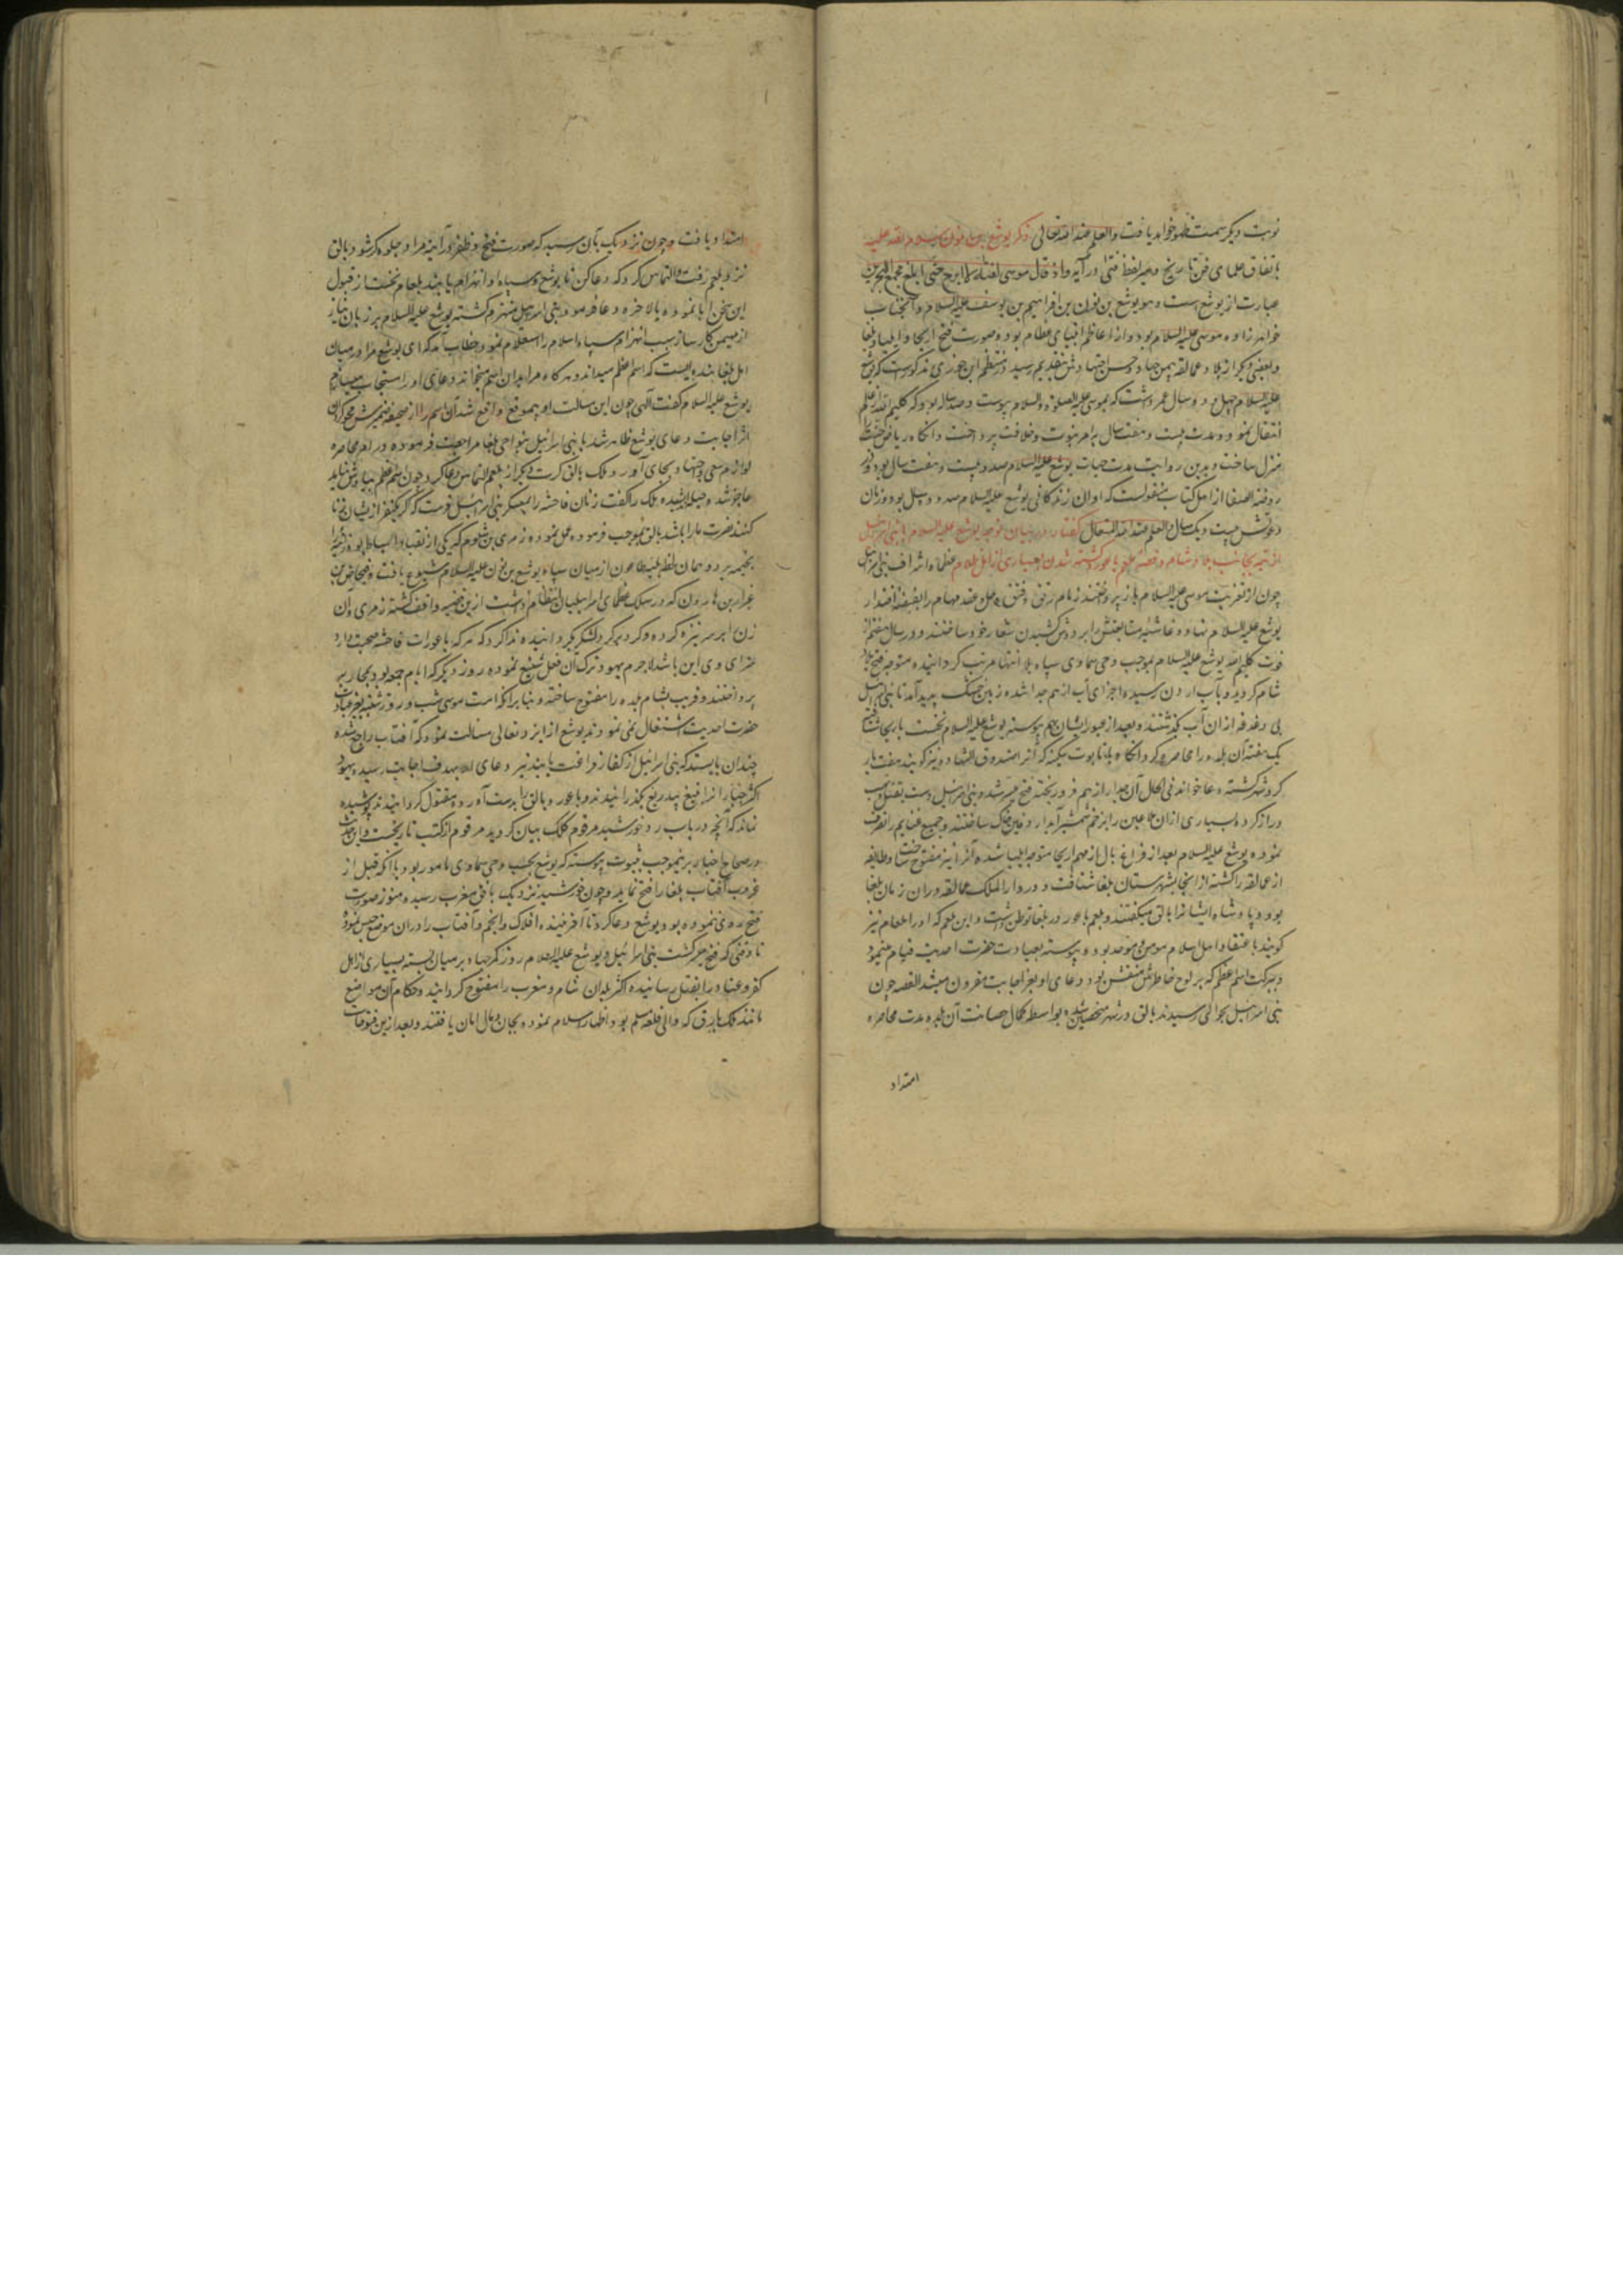 نوبت دیگر سمت ظهور خواهد یافت والعلم عند الله تعالی ذکر یوشع بن نون سلام الله علیه
باتفاق علمای فن تاریخ و سیر لفظ فتی در آیه واذ قال موسی لفتاه لا ابرح حتی ابلغ مجمع البحرین
عبارت از یوشع است و هو یوشع بن نون بن افراهیم بن یوسف علیه السلام و آنجناب
خواهرزاده موسی علیه السلام بود و از اعاظم انبیای عظام بود و صورت فتح اریحا و ایلیا و بلقا
و بعضی دیگر از بلاد عمالقه بیمن جهاد و حسن اجتهادش بتقدیم رسید و در منتظم ابن جوزی مذکورست که یوشع
علیه السلام چهل و دو سال عمر داشت که بموسی علیه الصلوة والسلام پیوست و صد ساله بود که کلیم الله از عالم
انتقال نمود و مدت بیست و هفت سال بامر نبوت و خلافت پرداخت و آنگاه ریاض جنت
منزل ساخت و بدین روایت مدت حیات یوشع علیه السلام صد و بیست و هفت سال بود و در
روضة الصفا از اهل کتاب منقولست که اوان زندگانی یوشع علیه السلام صد و ده سال بود و زمان
دعوتش بیست و یک سال والعلم عند الله المتعال گفتار در بیان توجه یوشع علیه السلام با بنی اسرائیل
از تیه بجانب بلاد شام و قصه بلعم باعور و کشته شدن بسیاری از اهل ظلام عظما و اشراف بنی اسرائیل
چون از تعزیت موسی علیه السلام باز پرداختند زمام رتق و فتق و حل و عقد مهام را بقبضه اقتدار
یوشع علیه السلام نهاده و غاشیه متابعتش را بر دوش کشیدن شعار خود ساختند و در سال هفتم از
فوت کلیم الله یوشع علیه السلام بموجب وحی سماوی سپاه بلا انتها مرتب گردانیده متوجه فتح بلاد
شام گردید و بآب اردن رسیده اجزای آب از هم جدا شده زمین خشک پدید آمد تا بنی اسرائیل
بی دغدغه از ان آب گذشتند و بعد از عبور ایشان بهم پیوست یوشع علیه السلام نخست باریحا شتافته
یک هفته آن بلده را محاصره کرد آنگاه با تابوت سکینه که آنرا صندوق الشهاده نیز گویند هفت بار
گرد شهر گشته دعا خواند فی الحال آن جدار از هم فرو ریخته فتح میسر شد و بنی اسرائیل دست بقتل و نهب
دراز کرده بسیاری از ان ملاعین را بزخم شمشیر آبدار دفین خاک ساختند و جمیع غنایم را تصرف
نموده یوشع علیه السلام بعد از فراغ بال از مهم اریحا متوجه ایلیا شده آنرا نیز مفتوح ساخت و طایفه
از عمالقه را کشته از انجا بشهرستان بلقا شتافت و در دار الملک عمالقه در ان زمان بلقا
بود و پادشاه ایشانرا بالق میگفتند و بلعم باعور در بلقا توطن داشت و این بلعم که او را بلعام نیز
گویند باعتقاد اهل اسلام مومن و موحد بود و پیوسته بعبادت حضرت احدیت قیام مینمود
و ببرکت اسم اعظم که بر لوح خاطرش منقش بود دعای او بعز اجابت مقرون میشد القصه چون
بنی اسرائیل بحوالی رسیدند بالق در شهر متحصن شده بواسطه کمال حصانت آن بلده مدت محاصره
امتداد
امتداد یافت و چون نزدیک بآن رسید که صورت فتح و ظفر در آینه مراد جلوه گر شود بالق
نزد بلعم رفت و التماس کرد که دعا کن تا یوشع و سپاه او انهزام یابند بلعام نخست از قبول
این سخن ابا نموده بالاخره دعا فرمود بنی اسرائیل منهزم گشته یوشع علیه السلام بر زبان نیاز
از مهیمن کارساز سبب انهزام سپاه اسلام را استعلام نمود خطاب آمد که ای یوشع مرا در میان
اهل بلقا بنده ایست که اسم اعظم میداند و هر گاه مرا بدان اسم میخواند دعای او را مستجاب میسازم
یوشع علیه السلام گفت الهی چون این مسالت او بموقع واقع نشد آن اسم را از صحیفه ضمیرش محو گردان
اثر اجابت دعای یوشع ظاهر شد با بنی اسرائیل بنواحی بلقا مراجعت فرموده در امر محاصره
لوازم سعی و جهاد بجای آورد و ملک بالق کرت دیگر از بلعم التماس دعا کرد و چون بلعم اسم اعظم بیادش نیامد
عاجز شد و حیله اندیشیده ملک را گفت زنان فاحشه را بمعسکر بنی اسرائیل فرست که اگر یکنفر از ایشان زنا
کنند نصرت ما را باشد بالق بموجب فرموده عمل نموده زمری بن شلوم که یکی از نقباء اسباط بود زنی را
بخیمه برد و همان لحظه بلیه طاعون از میان سپاه یوشع بن نون علیه السلام شیوع یافت و فیحاص بن
عیزار بن هارون که در سلک عظمای اسرائیلیان انتظام داشت از ین قضیه واقف گشته زمری و آن
زن را بر سر نیزه کرده و گرد بر گرد لشکر گردانیده ندا کرد که هر که با عورات فاحشه صحبت دارد
سزای وی این باشد لاجرم یهود ترک آن فعل شنیع نموده روز دیگر که ایام جمعه بود بمحاربه
پرداختند و قریب بشام بلده را مفتوح ساخته و بنا بر آنکه امت موسی شب و روز شنبه بغیر عبادت
حضرت احدیت اشتغال نمی نمودند یوشع از ایزد تعالی مسالت نمود که آفتاب راجع شده
چندان بایستد که بنی اسرائیل از کفار فراغت یابند تیر دعای او بهدف اجابت رسیده یهود
اکثر جباران را از تیغ بیدریغ بگذرانیدند و باعور و بالق را بدست آورده مقتول گردانیدند پوشیده
نماند که آنچه در باب رد خورشید مرقوم کلک بیان گردید مرقوم از کتب تاریخست و این حدیث
در صحاح اخبار برینموجب ثبوت پیوسته که یوشع بحسب وحی سماوی مامور بود باآنکه قبل از
غروب آفتاب بلقا را فتح نماید و چون خورشید نزدیک بافق مغرب رسید و هنوز صورت
فتح روی ننموده بود یوشع دعا کرد تا آفریننده افلاک و انجم آفتاب را در ان موضع حبس نمود
تا وقتی که فتح میسر گشت بنی اسرائیل و یوشع علیه السلام روز دیگر جهاد بر میان بسته بسیاری از اهل
کفر و عناد را بقتل رسانیده اکثر بلدان شام و مغرب را مفتوح گردانید و حکام آن مواضع
مانند ملک بارق که والی قلعه سلم بود اظهار اسلام نموده بجان و مال امان یافتند و بعد از ین فتوحات